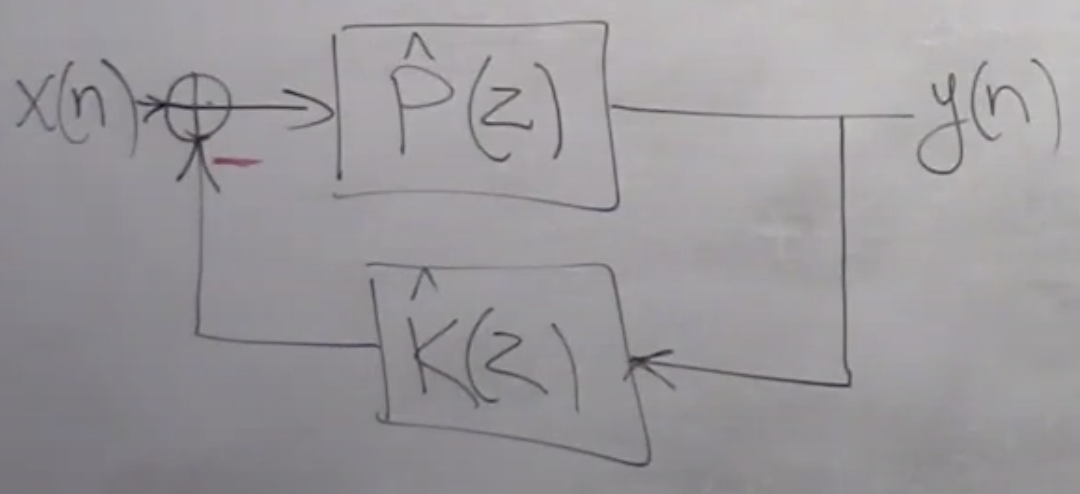 x(n) + P̂(z) y(n)
−
K̂(z)